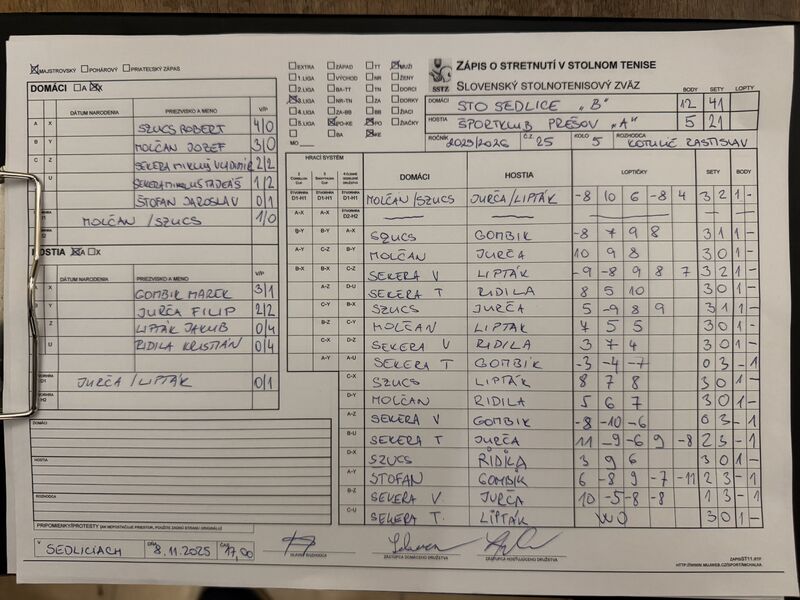 MAJSTROVSKÝ POHÁROVÝ PRIATEĽSKÝ ZÁPAS
EXTRA ZÁPAD TT MUŽI
1.LIGA VÝCHOD NR ŽENY
2.LIGA BA-TT TN DORCI
3.LIGA NR-TN ZA DORKY
4.LIGA ZA-BB BB ŽIACI
5.LIGA PO-KE PO ŽIAČKY
BA KE
MO
SSTZ
ZÁPIS O STRETNUTÍ V STOLNOM TENISE
SLOVENSKÝ STOLNOTENISOVÝ ZVÄZ
BODY SETY LOPTY
DOMÁCI STO SEDLICE "B" 12 41
HOSTIA ŠPORTKLUB PREŠOV "A" 5 21
ROČNÍK 2025/2026 Č.Z. 25 KOLO 5 ROZHODCA KOTULIČ RASTISLAV
DOMÁCI A X
DÁTUM NARODENIA PRIEZVISKO A MENO V/P
A X SZUCS ROBERT 4/0
B Y MOLČAN JOZEF 3/0
C Z SEKERA MIKULÁŠ VLADIMÍR 2/2
U SEKERA MIKULÁŠ TADEÁŠ 1/2
ŠTOFAN JAROSLAV 0/1
MOLČAN /SZUCS 1/0
HOSTIA A X
DÁTUM NARODENIA PRIEZVISKO A MENO V/P
X GOMBIK MAREK 3/1
Y JURČA FILIP 2/2
Z LIPTÁK JAKUB 0/4
U RIDILA KRISTIÁN 0/4
JURČA /LIPTÁK 0/1
DOMÁCI
HOSTIA
ROZHODCA
PRIPOMIENKY/PROTESTY (AK NEPOSTAČUJE PRIESTOR, POUŽITE ZADNÚ STRANU ORIGINÁLU)
HRACÍ SYSTÉM DOMÁCI HOSTIA LOPTIČKY SETY BODY
D1-H1 D1-H1 D1-H1 MOLČAN/SZUCS JURČA/LIPTÁK -8 10 6 -8 4 3 2 1 -
A-X A-X D2-H2
B-Y B-Y A-X SZUCS GOMBIK -8 7 9 8 3 1 1 -
A-Y C-Z B-Y MOLČAN JURČA 10 9 8 3 0 1 -
B-X B-X C-Z SEKERA V LIPTÁK -9 -8 9 8 7 3 2 1 -
A-Z D-U SEKERA T RIDILA 8 5 10 3 0 1 -
C-Y A-Y SZUCS JURČA 5 -9 8 9 3 1 1 -
B-Z B-Z MOLČAN LIPTÁK 7 5 5 3 0 1 -
C-X C-U SEKERA V RIDILA 3 7 4 3 0 1 -
A-Y D-X SEKERA T GOMBIK -3 -4 -7 0 3 - 1
SZUCS LIPTÁK 8 7 8 3 0 1 -
MOLČAN RIDILA 5 6 7 3 0 1 -
SEKERA V GOMBIK -8 -10 -6 0 3 - 1
SEKERA T JURČA 11 -9 -6 9 -8 2 3 - 1
SZUCS RIDILA 3 9 6 3 0 1 -
STOFAN GOMBIK 6 -8 9 -7 -11 2 3 - 1
SEKERA V. JURČA 10 -5 -8 -8 1 3 - 1
SEKERA T. LIPTÁK WO 3 0 1 -
V SEDLICIACH DŇA 8.11.2025 ČAS 17,00
HLAVNÝ ROZHODCA ZÁSTUPCA DOMÁCEHO DRUŽSTVA ZÁSTUPCA HOSŤUJÚCEHO DRUŽSTVA
ZAPISST11.RTF